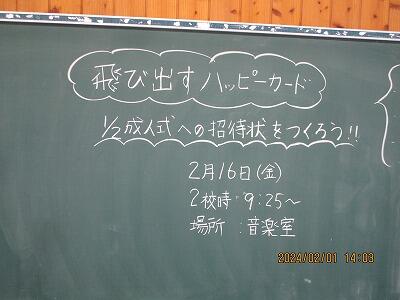 飛び出すハッピーカード
1/2成人式への招待状をつくろう!!
2月16日(金)
2校時:9:25~
場所:音楽室
2024/02/01 14:03